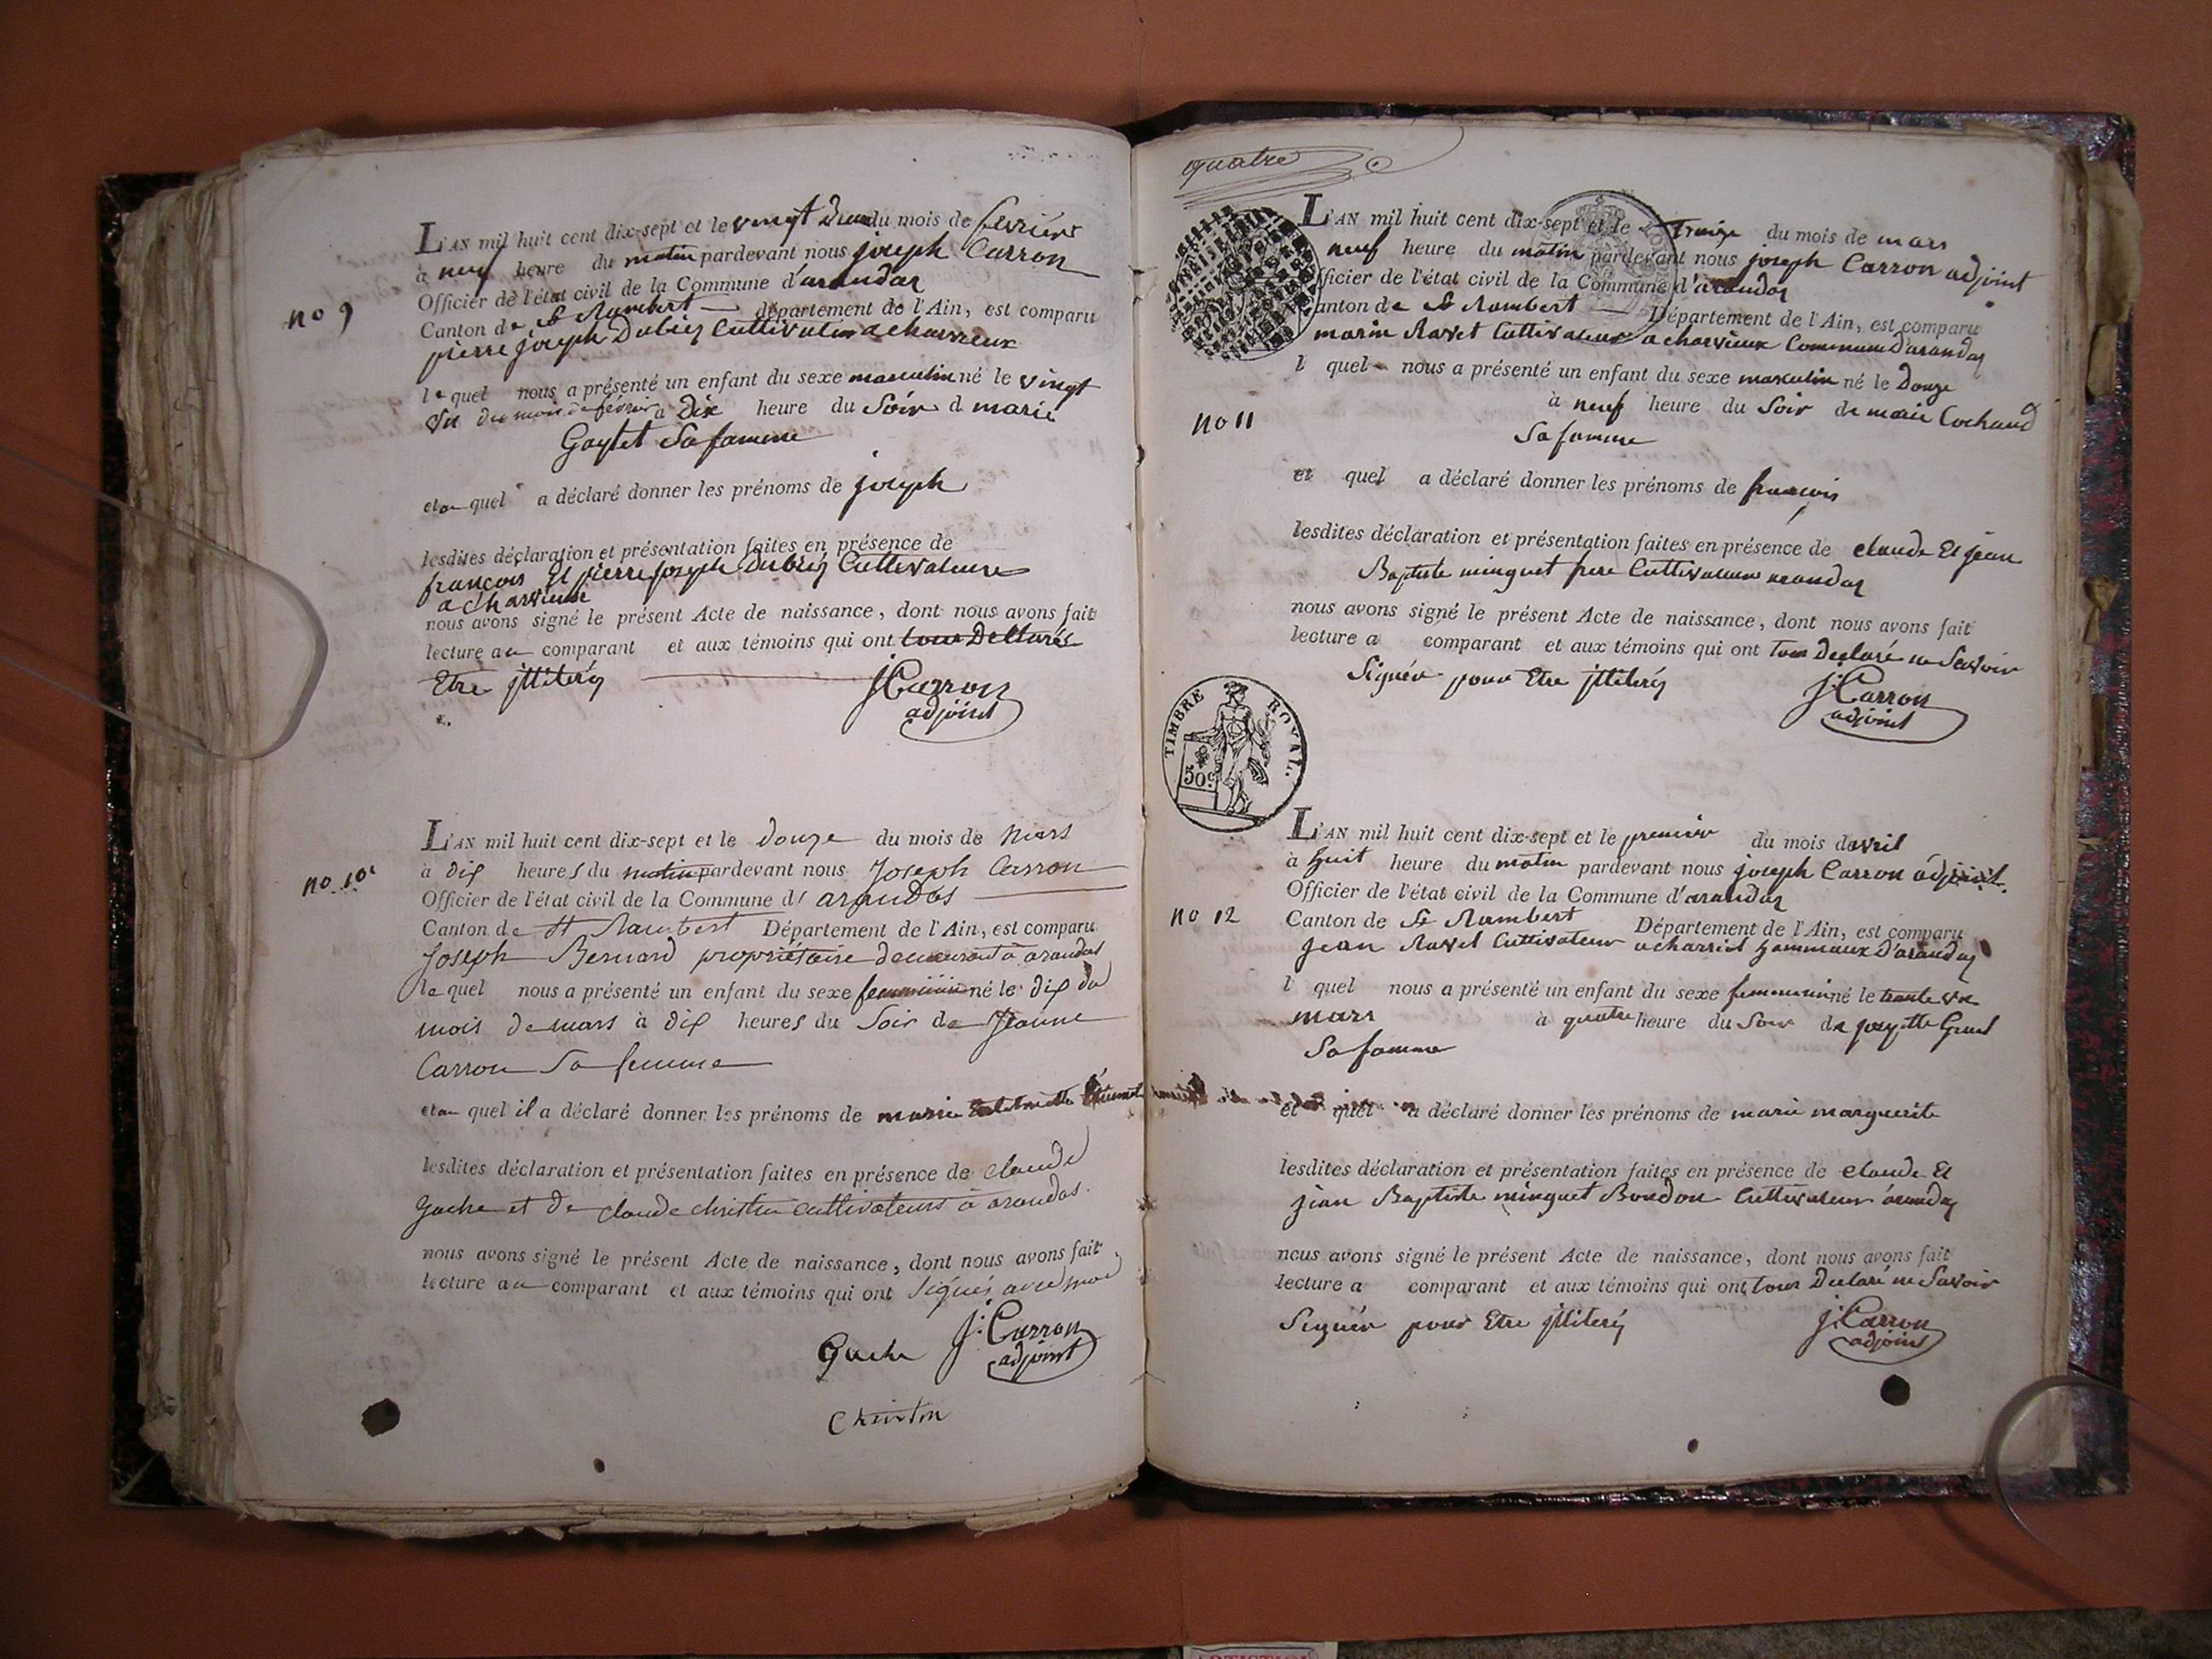 no 9
L'AN mil huit cent dix-sept et le vingt deux du mois de fevrier
à neuf heure du matin pardevant nous joseph Carron
Officier de l'état civil de la Commune d'arandas
Canton de St Rambert département de l'Ain, est comparu
pierre joseph Dubiez Cultivateur a charvieux
le quel nous a présenté un enfant du sexe masculin né le vingt
un du mois de février a dix heure du Soir d marie
Sa famme
et au quel a déclaré donner les prénoms de joseph
lesdites déclaration et présentation faites en présence de
françois Et pierre joseph Dubiez Cultivateurs
a charvieux
nous avons signé le présent Acte de naissance, dont nous avons fait
lecture au comparant et aux témoins qui ont tous Déclarés
Etre jlliterés
J: Carron
adjoint
no 10
L'AN mil huit cent dix-sept et le douze du mois de Mars
à dix heures du matin pardevant nous Joseph Carron
Officier de l'état civil de la Commune d'arandas
Canton de St Rambert Département de l'Ain, est comparu
Joseph Bernard propriétaire demeurant à arandas
le quel nous a présenté un enfant du sexe feminin né le dix du
mois de mars à dix heures du Soir de Jeanne
Carron Sa femme
et au quel il a déclaré donner les prénoms de marie
lesdites déclaration et présentation faites en présence de claude
Gache et de claude christin cultivateurs à arandas.
nous avons signé le présent Acte de naissance, dont nous avons fait
lecture au comparant et aux témoins qui ont signés avec moi
Gache J: Carron
adjoint
Christin
quatre
L'AN mil huit cent dix-sept et le treize du mois de mars
neuf heure du matin pardevant nous joseph Carron adjoint
Officier de l'état civil de la Commune d'arandas
Canton de St Rambert Département de l'Ain, est comparu
marin Ravet Cultivateur a charvieux Commune d'arandas
l quel nous a présenté un enfant du sexe masculin né le Douze
à neuf heure du Soir de marie Cochand
Sa famme
no 11
et quel a déclaré donner les prénoms de françois
lesdites déclaration et présentation faites en présence de claude Et jean
Baptiste minguet frere Cultivateur arandas
nous avons signé le présent Acte de naissance, dont nous avons fait
lecture a comparant et aux témoins qui ont tous Declaré ne Savoir
Signér pour Etre jlliterés
J: Carron
adjoint
TIMBRE ROYAL.
50c
L'AN mil huit cent dix-sept et le premier du mois davril
à huit heure du matin pardevant nous joseph Carron adjoint
Officier de l'état civil de la Commune d'arandas
no 12
Canton de St Rambert Département de l'Ain, est comparu
jean Ravet Cultivateur hammaux D'arandas
l quel nous a présenté un enfant du sexe femminin né le trante un
mars à quatre heure du Soir de josepthe
Sa famme
et quel a déclaré donner les prénoms de marie marguerite
lesdites déclaration et présentation faites en présence de claude Et
jean Baptiste minguet Boudon Cultivateur arandas
nous avons signé le présent Acte de naissance, dont nous avons fait
lecture a comparant et aux témoins qui ont tous Declaré ne Savoir
Signér pour Etre jlliterés
J: Carron
adjoint